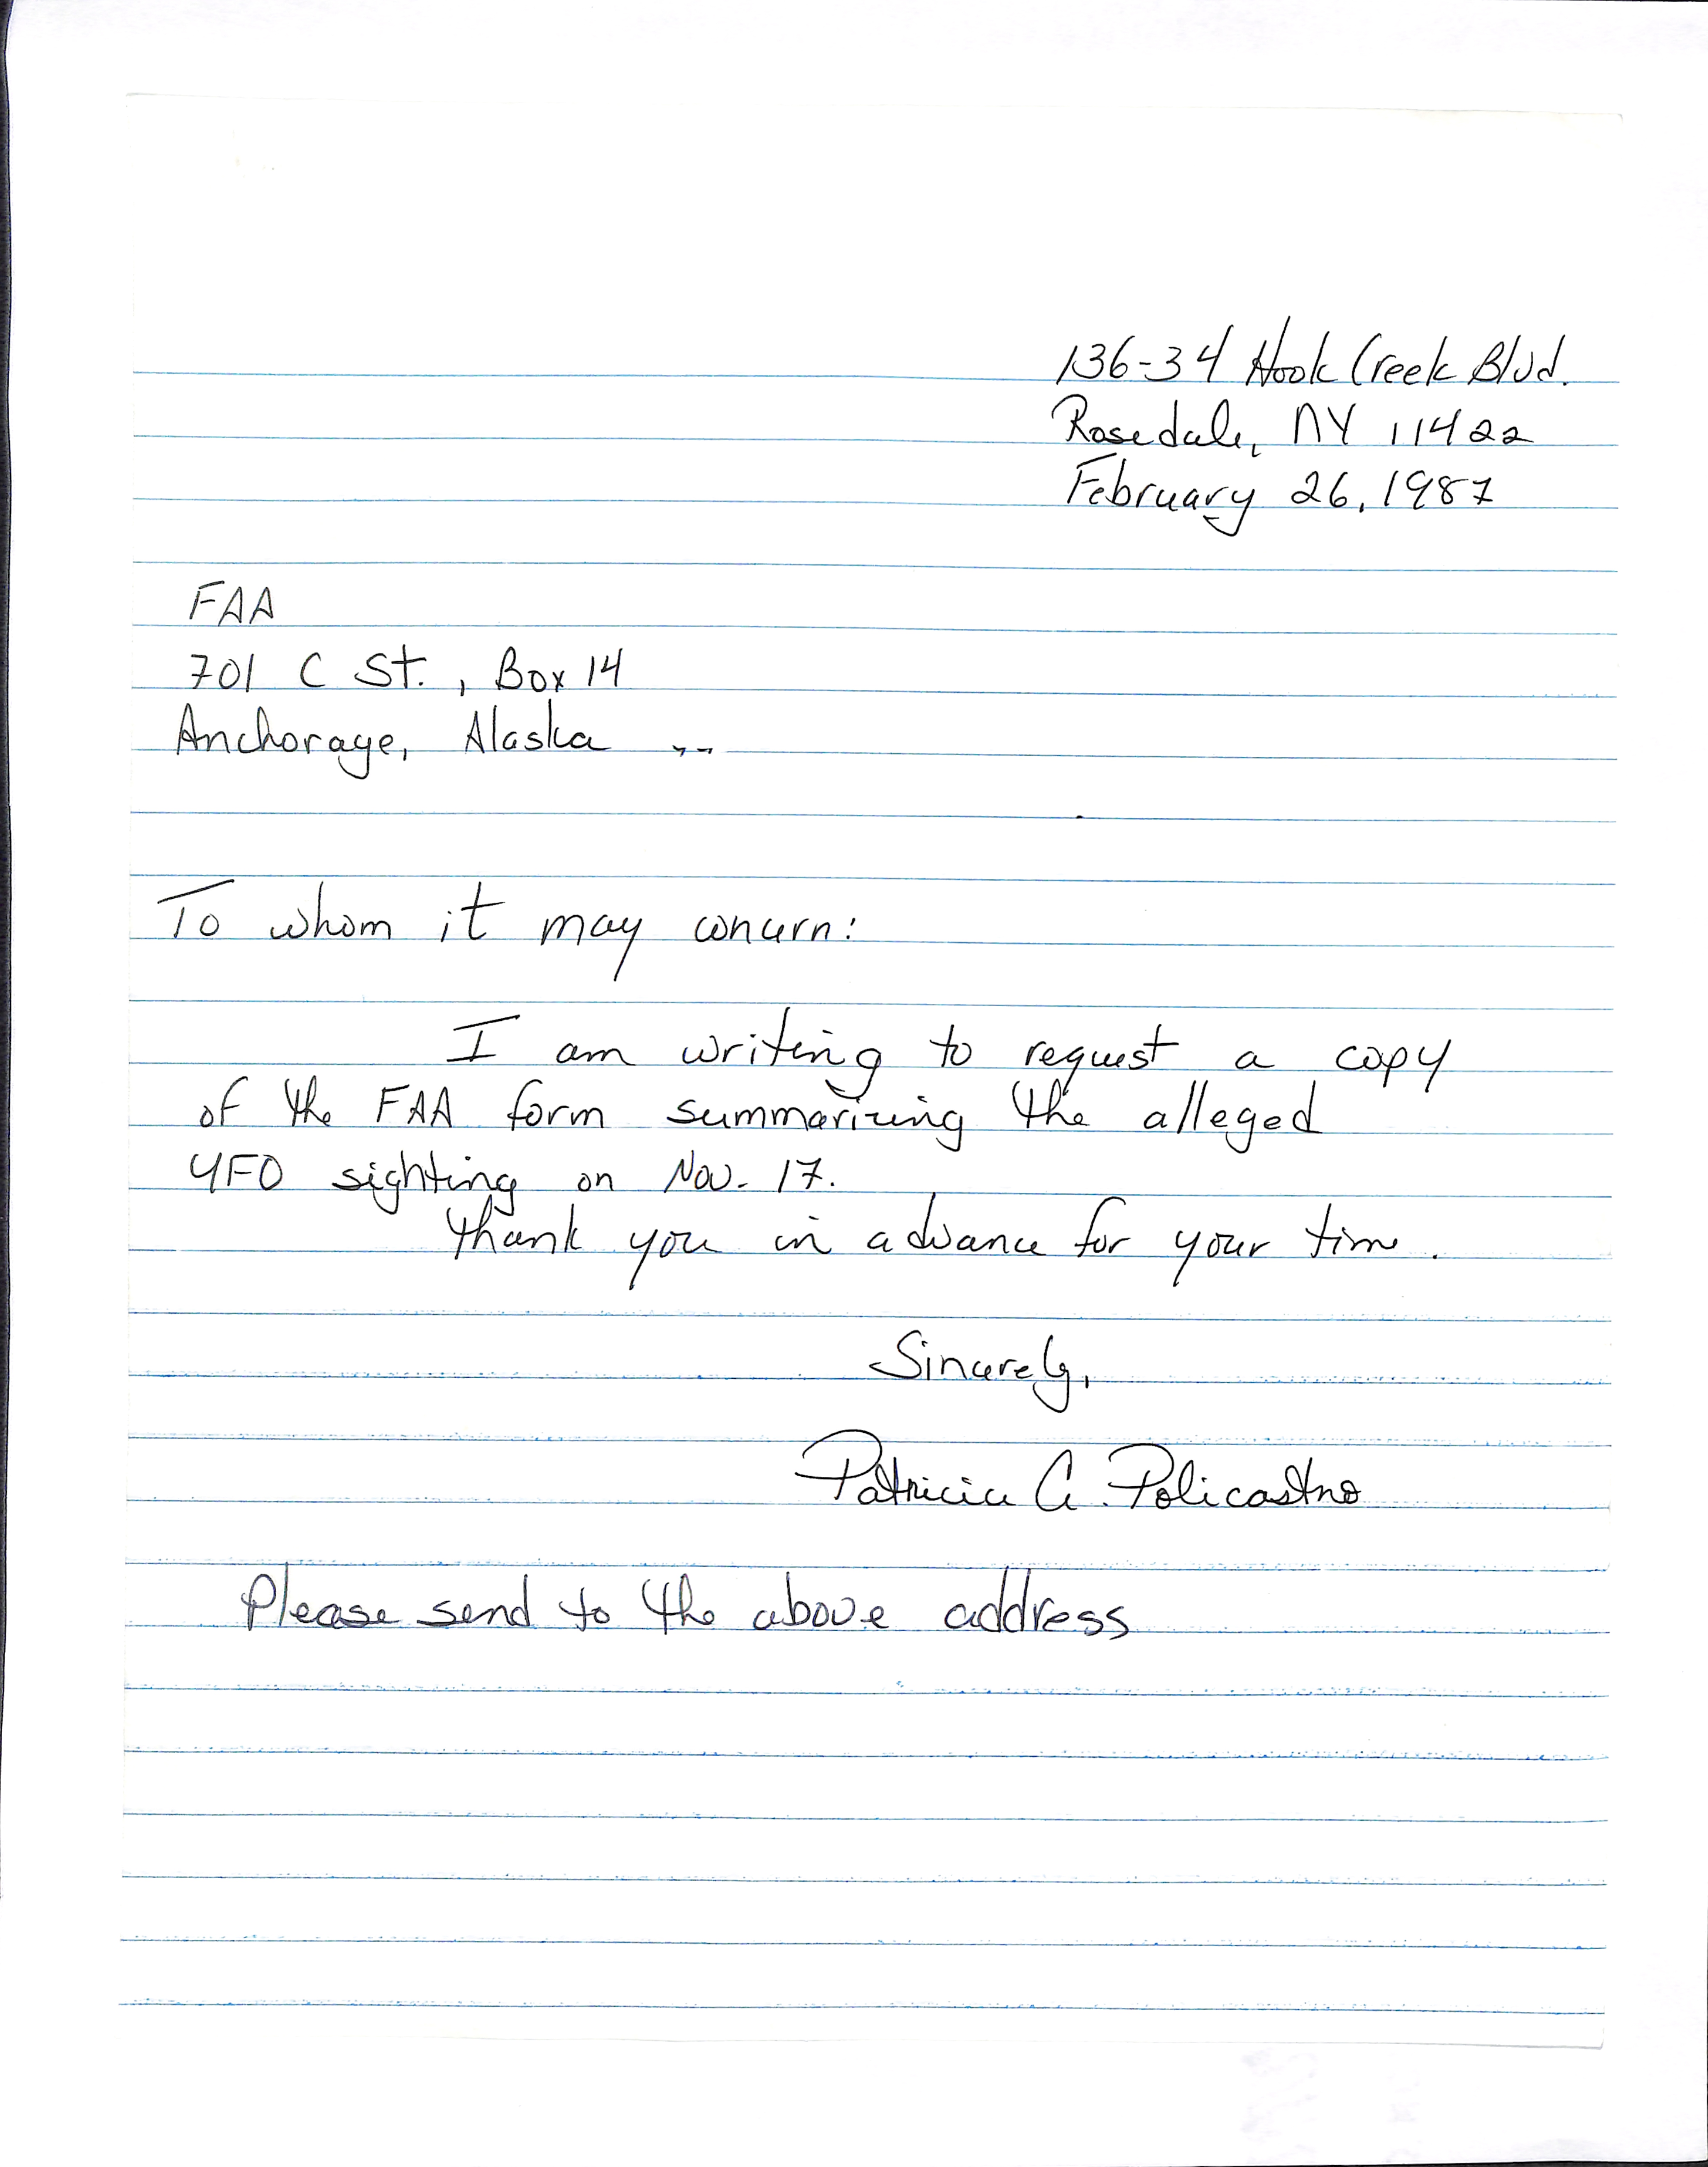 136-34 Hook Creek Blvd.
Rosedale, NY 11422
February 26, 1987
FAA
701 C St., Box 14
Anchorage, Alaska
To whom it may concern:
I am writing to request a copy
of the FAA form summarizing the alleged
UFO sighting on Nov. 17.
Thank you in advance for your time.
Sincerely,
Patricia A. Policastro
Please send to the above address